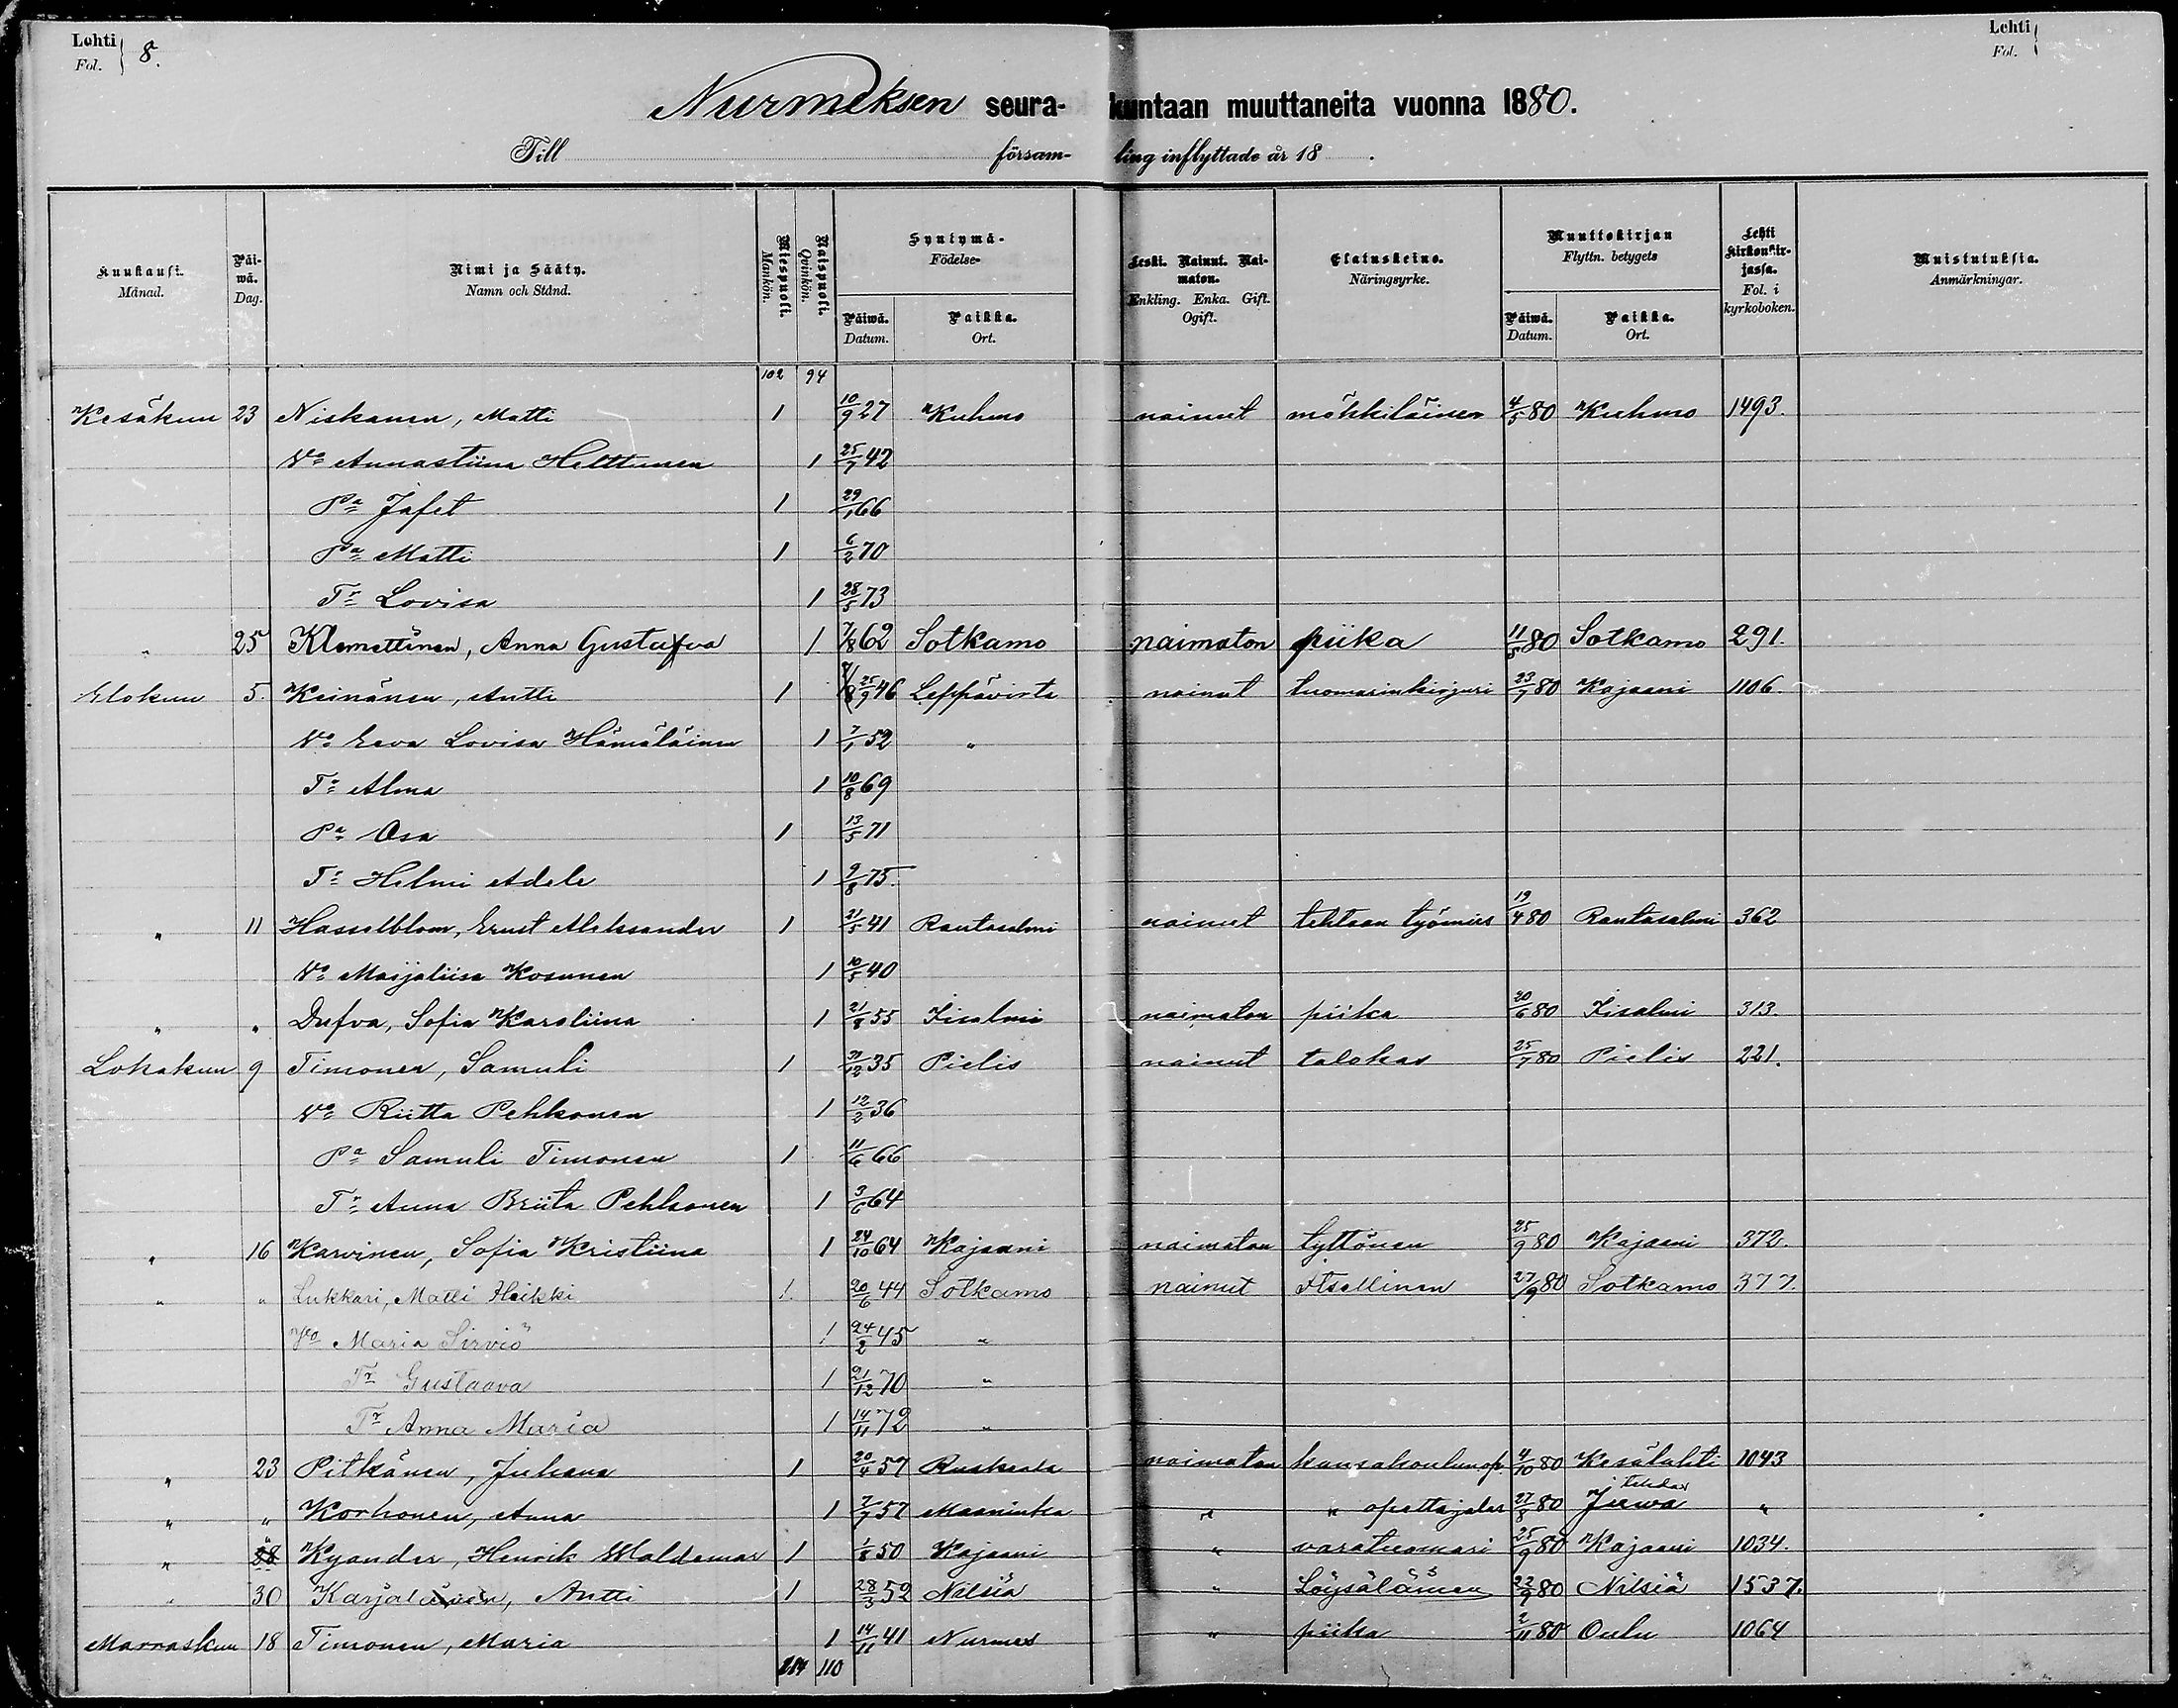 Lehti Fol. } 8.
Lehti Fol. }
Nurmeksen seurakuntaan muuttaneita vuonna 1880.
Till församling inflyttade år 18 .
Kuukausi. Månad. | Päiwä. Dag. | Nimi ja Sääty. Namn och Stånd. | Miespuoli. Mankön. | Naispuoli. Qvinkön. | Syntymä- Födelse- Päiwä. Datum. | Paikka. Ort. | Leski. Nainut. Naimaton. Enkling. Enka. Gift. Ogift. | Elatuskeino. Näringsyrke. | Muuttokirjan Flyttn. betygets Päiwä. Datum. | Paikka. Ort. | Lehti kirkonkirjassa. Fol. i kyrkoboken. | Muistutuksia. Anmärkningar.
102 94
Kesäkuu 23 Niskanen, Matti 1 10/9 27 Kuhmo nainut mökkiläinen 4/5 80 Kuhmo 1493.
Vo Annastiina Helttunen 1 25/7 42
Pa Jafet 1 29/1 66
Pa Matti 1 6/2 70
Tr Lovisa 1 28/5 73
" 25 Klemettinen, Anna Gustafva 1 7/8 62 Sotkamo naimaton piika 11/5 80 Sotkamo 291.
Elokuu 5. Keinänen, Antti 1 25/9 46 Leppävirta nainut tuomarinkirjuri 23/7 80 Kajaani 1106.
Vo Eeva Lovisa Hämäläinen 1 7/1 52 "
Tr Alma 1 10/8 69
Pa Osa 1 13/5 71
Tr Helmi Adele 1 9/8 75.
" 11 Hasselblom, Ernst Aleksander 1 21/5 41 Rantasalmi nainut tehtaan työmies 19/4 80 Rantasalmi 362
Vo Maijaliisa Kosunen 1 10/5 40
" " Dufva, Sofia Karoliina 1 21/8 55 Iisalmi naimaton piika 20/6 80 Iisalmi 313.
Lokakuu 9 Timonen, Samuli 1 31/12 35 Pielis nainut talokas 25/7 80 Pielis 221.
Vo Riitta Pehkonen 1 12/2 36
Pa Samuli Timonen 1 11/6 66
Tr Anna Briita Pehkonen 1 3/6 64
" 16 Karvinen, Sofia Kristiina 1 24/10 64 Kajaani naimaton tyttönen 25/9 80 Kajaani 372.
" " Lukkari, Matti Heikki 1. 20/6 44 Sotkamo nainut Itsellinen 27/9 80 Sotkamo 377.
Vo Maria Sirviö 1 24/2 45 "
Tr Gustaava 1 21/12 70 "
Tr Anna Maria 1 14/11 72 "
" 23 Pitkänen, Juhana 1 20/4 57 Ruskeala naimaton kansakoulunop. 4/10 80 Kesälahti 1043
" " Korhonen, Anna 1 7/7 57 Maaninka " " opettajatar 27/8 80 Juwa "
" " Kyander, Henrik Waldemar 1 1/8 50 Kajaani " varatuomari 25/9 80 Kajaani 1034.
" 30 Karjalainen, Antti 1 28/3 52 Nilsiä " Löysäläinen 22/9 80 Nilsiä 1537.
Marraskuu 18 Timonen, Maria 1 14/11 41 Nurmes " piika 2/11 80 Oulu 1064
110